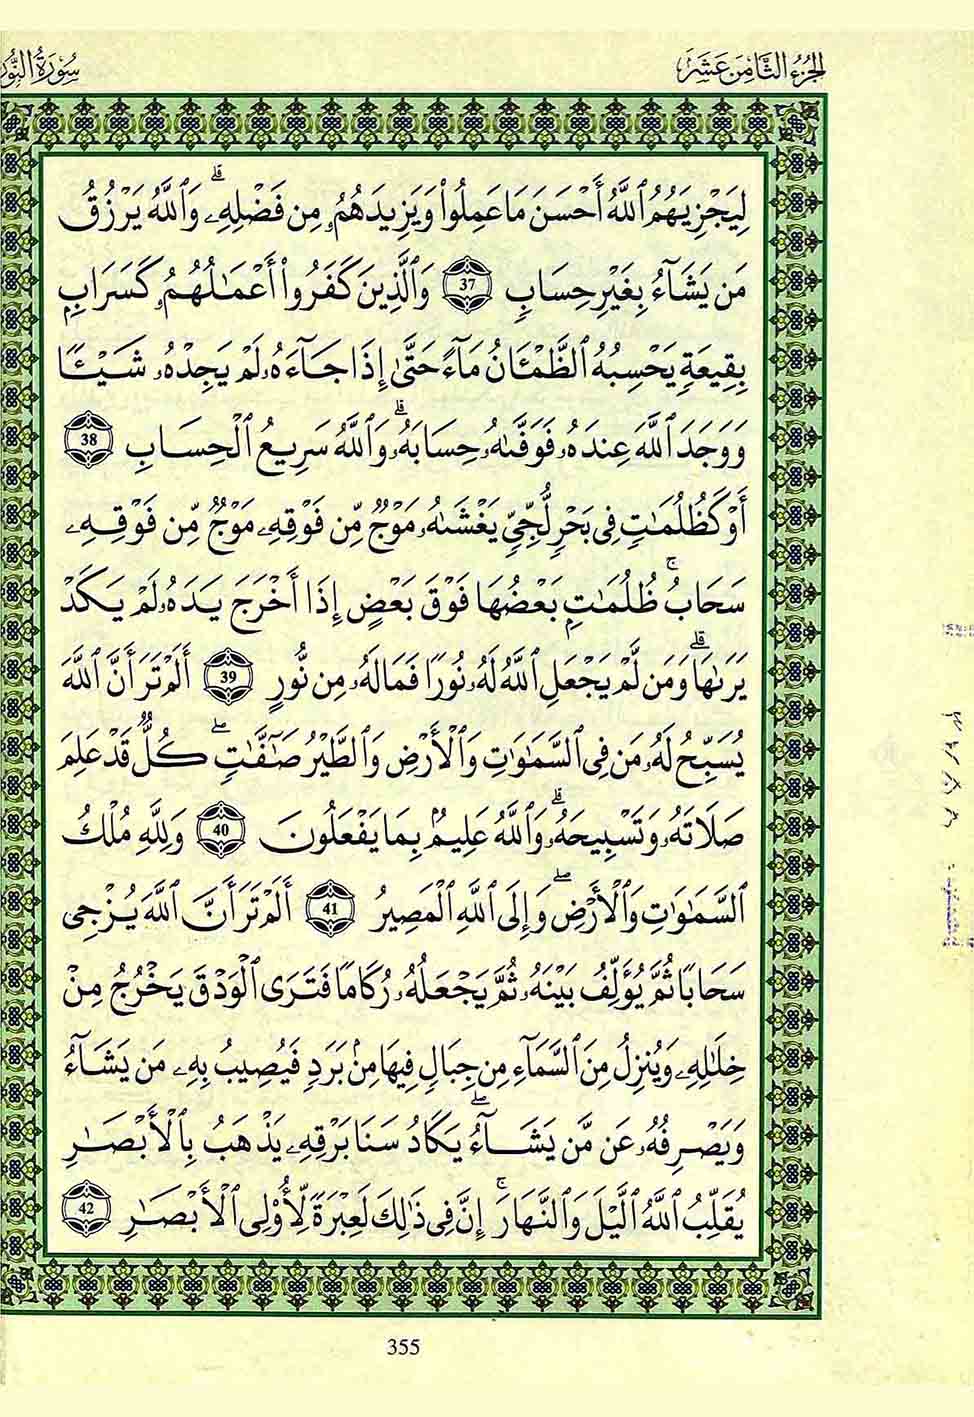 الجزء الثامن عشر
سورة النور
لِيَجْزِيَهُمُ ٱللَّهُ أَحْسَنَ مَا عَمِلُوا۟ وَيَزِيدَهُمُۥ مِن فَضْلِهِۦۗ وَٱللَّهُ يَرْزُقُ
مَن يَشَآءُ بِغَيْرِ حِسَابٖ 37 وَٱلَّذِينَ كَفَرُوٓا۟ أَعْمَٰلُهُمُۥ كَسَرَابِۭ
بِقِيعَةٖ يَحْسِبُهُ ٱلظَّمْـَٔانُ مَآءً حَتَّىٰٓ إِذَا جَآءَهُۥ لَمْ يَجِدْهُۥ شَيْـًٔا
وَوَجَدَ ٱللَّهَ عِندَهُۥ فَوَفَّىٰهُۥ حِسَابَهُۥۗ وَٱللَّهُ سَرِيعُ ٱلْحِسَابِ 38
أَوْ كَظُلُمَٰتٖ فِى بَحْرٖ لُّجِّىّٖ يَغْشَىٰهُۥ مَوْجٌ مِّن فَوْقِهِۦ مَوْجٌ مِّن فَوْقِهِۦ
سَحَابُۚ ظُلُمَٰتِۭ بَعْضُهَا فَوْقَ بَعْضٍ إِذَآ أَخْرَجَ يَدَهُۥ لَمْ يَكَدْ
يَرَىٰهَاۗ وَمَن لَّمْ يَجْعَلِ ٱللَّهُ لَهُۥ نُورًا فَمَا لَهُۥ مِن نُّورٍ 39 أَلَمْ تَرَ أَنَّ ٱللَّهَ
يُسَبِّحُ لَهُۥ مَن فِى ٱلسَّمَٰوَٰتِ وَٱلْأَرْضِ وَٱلطَّيْرُ صَٰٓفَّٰتٍۖ كُلٌّ قَدْ عَلِمَ
صَلَاتَهُۥ وَتَسْبِيحَهُۥۗ وَٱللَّهُ عَلِيمُۢ بِمَا يَفْعَلُونَ 40 وَلِلَّهِ مُلْكُ
ٱلسَّمَٰوَٰتِ وَٱلْأَرْضِۖ وَإِلَى ٱللَّهِ ٱلْمَصِيرُ 41 أَلَمْ تَرَ أَنَّ ٱللَّهَ يُزْجِى
سَحَابًا ثُمَّ يُؤَلِّفُ بَيْنَهُۥ ثُمَّ يَجْعَلُهُۥ رُكَامًا فَتَرَى ٱلْوَدْقَ يَخْرُجُ مِنْ
خِلَٰلِهِۦ وَيُنزِلُ مِنَ ٱلسَّمَآءِ مِن جِبَالٖ فِيهَا مِنۢ بَرَدٖ فَيُصِيبُ بِهِۦ مَن يَشَآءُ
وَيَصْرِفُهُۥ عَن مَّن يَشَآءُۖ يَكَادُ سَنَا بَرْقِهِۦ يَذْهَبُ بِٱلْأَبْصَٰرِ
يُقَلِّبُ ٱللَّهُ ٱلَّيْلَ وَٱلنَّهَارَۚ إِنَّ فِى ذَٰلِكَ لَعِبْرَةً لِّأُو۟لِى ٱلْأَبْصَٰرِ 42
355